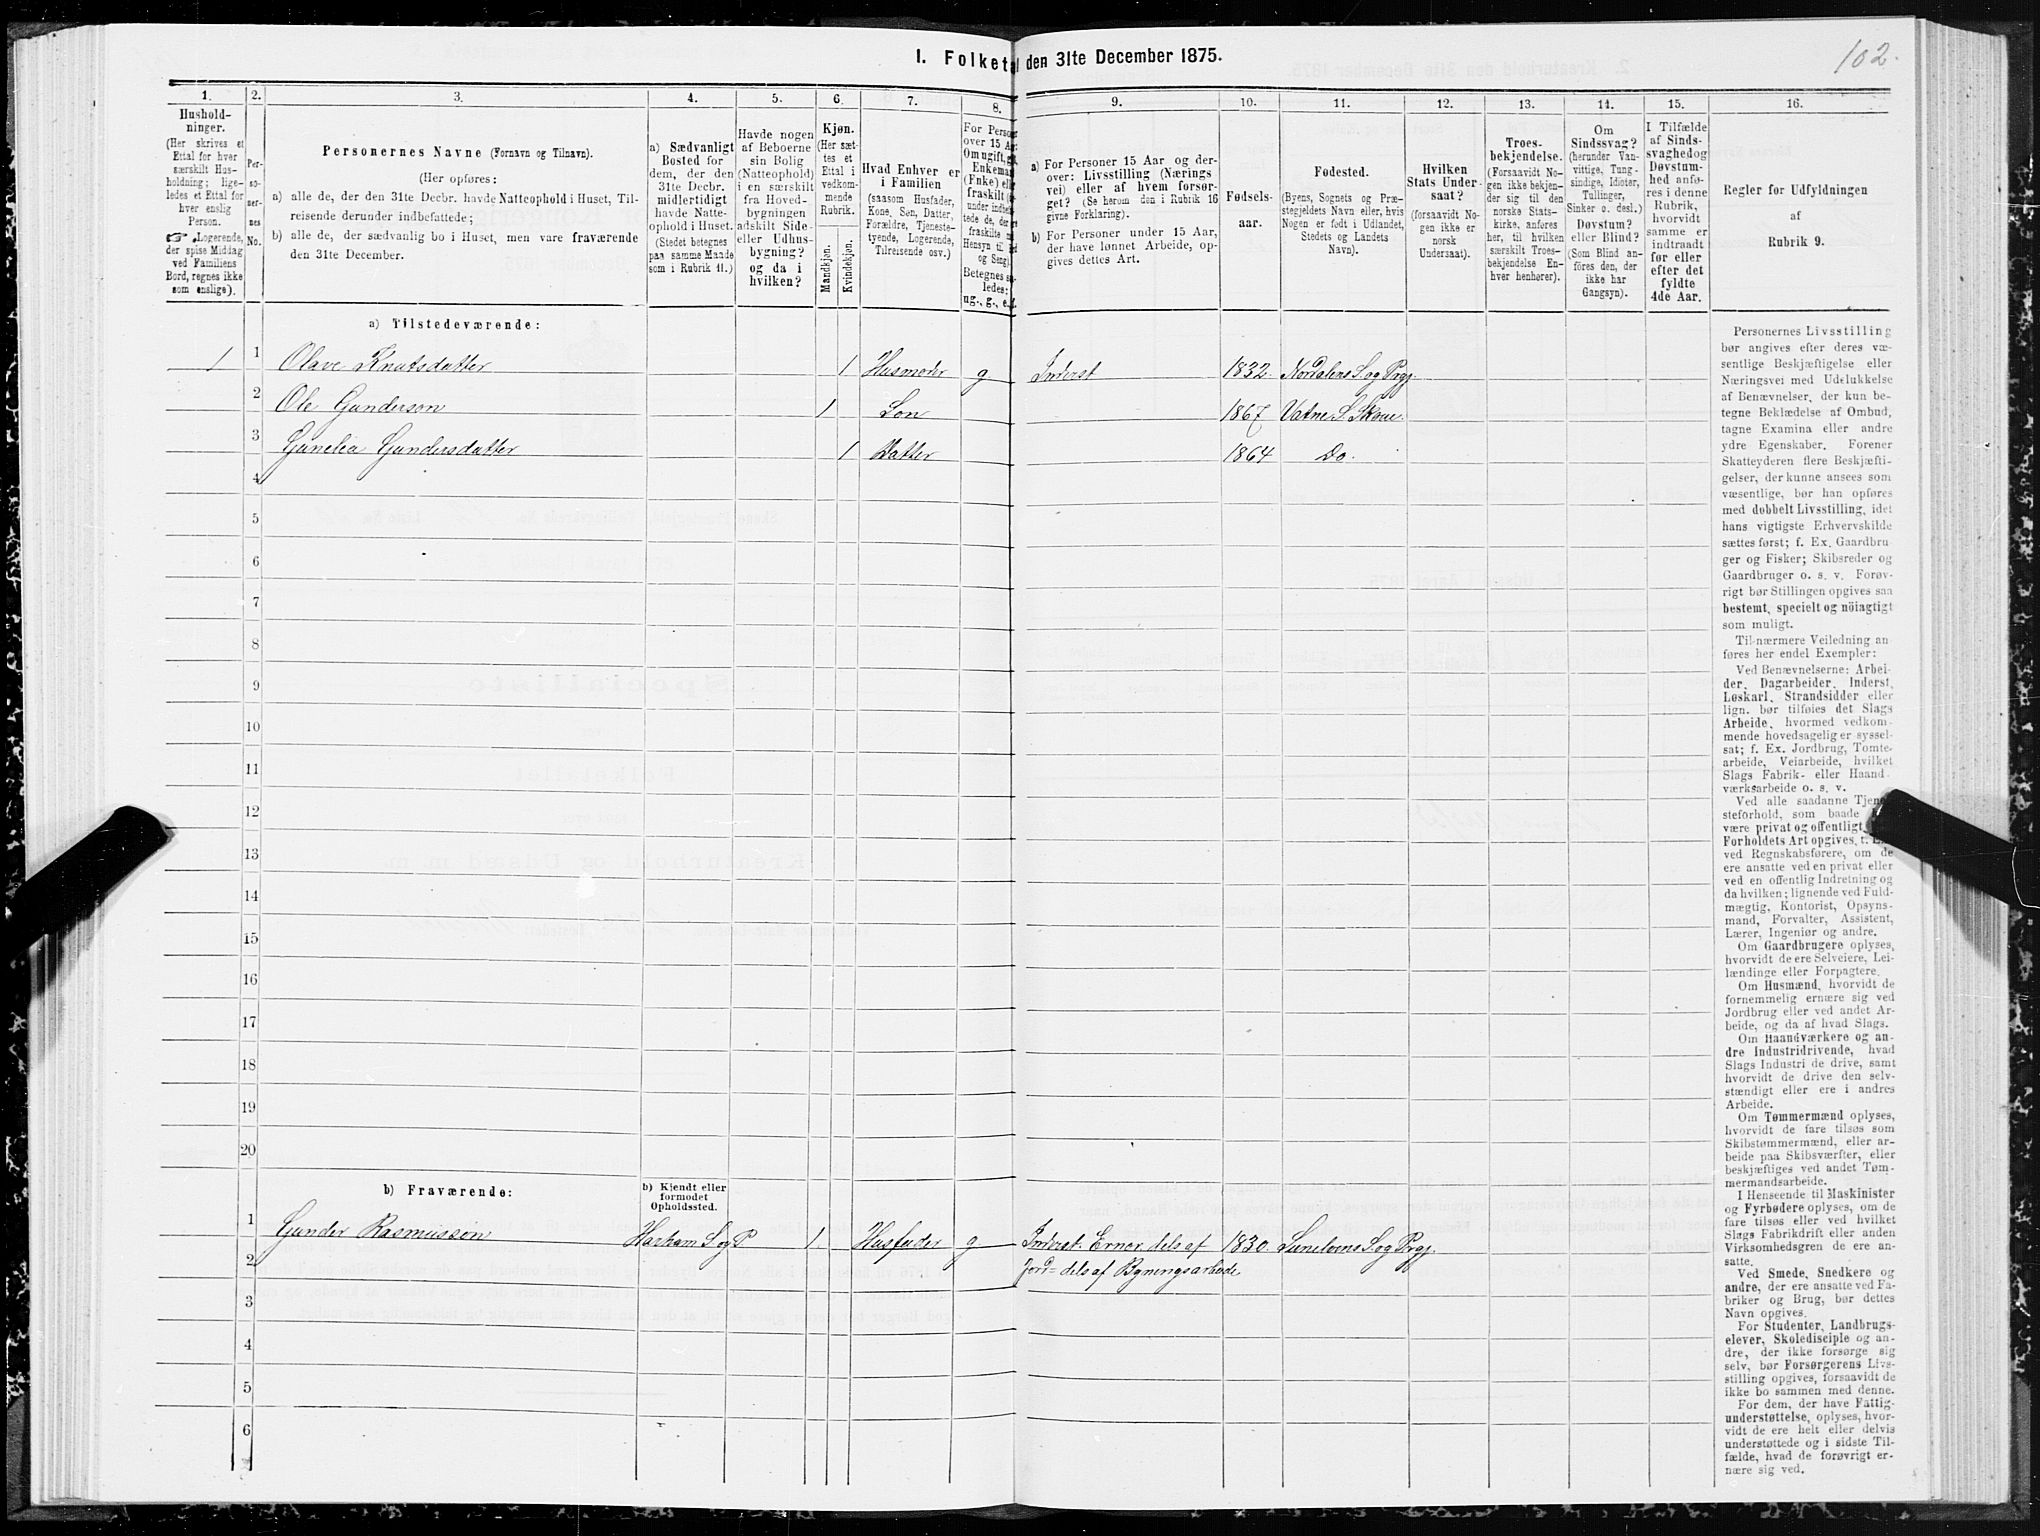 102.
I. Folketal den 31te December 1875.
1. 2. 3. 4. 5. 6. 7. 8. 9. 10. 11. 12. 13. 14. 15. 16.
Hushold-
ninger.
(Her skrives et
Ettal for hver
særskilt Hus-
holdning; lige-
ledes et Ettal for
hver enslig
Person.
☞ Logerende,
der spise Middag
ved Familiens
Bord, regnes ikke
som enslige).
Per-
so-
ner-
nes
No.
Personernes Navne (Fornavn og Tilnavn).
(Her opføres:
a) alle de, der den 31te Decbr. havde Natteophold i Huset, Til-
reisende derunder indbefattede;
b) alle de, der sædvanlig bo i Huset, men vare fraværende
den 31te December.
a) Sædvanligt
Bosted for
dem, der den
31te Decbr.
midlertidigt
havde Natte-
ophold i Huset.
(Stedet betegnes
paa samme Maade
som i Rubrik 11.)
Havde nogen
af Beboerne
sin Bolig
(Natteophold)
i en særskilt
fra Hoved-
bygningen
adskilt Side-
eller Udhus-
bygning?
og da i
hvilken?
Kjøn.
(Her sæt-
tes et
Ettal i
vedkom-
mende
Rubrik.
Mandkjøn.
Kvindekjøn.
Hvad Enhver er
i Familien
(saasom Husfader,
Kone, Søn, Datter,
Forældre, Tjeneste-
tyende, Logerende,
Tilreisende osv.)
For Person
over 15 Aar
Om ugift, g
Enkemand
(Enke) el
fraskilt
under indbe
tede de, der
fraskilte
Hensyn til
og Seng)
Betegnes sa
ledes:
ug., g., e., f.
a) For Personer 15 Aar og der-
over: Livsstilling (Nærings
vei) eller af hvem forsør-
get? (Se herom den i Rubrik 16
givne Forklaring).
b) For Personer under 15 Aar,
der have lønnet Arbeide, op-
gives dettes Art.
Fødsels-
aar.
Fødested.
(Byens, Sognets og Præ-
stegjeldets Navn eller, hvis
Nogen er født i Udlandet,
Stedets og Landets
Navn).
Hvilken
Stats Under-
saat?
(forsaavidt No-
gen ikke er
norsk
Undersaat).
Troes-
bekjendelse.
(Forsaavidt No-
gen ikke bekjen-
der sig til den
norske Stats-
kirke, anføres
her, til hvilken
særskilt Troes-
bekjendelse En-
hver henhører).
Om
Sindssvag?
(herunder Van-
vittige, Tung-
sindige, Idioter,
Tullinger,
Sinker o. desl.)
Døvstum?
eller Blind?
(Som Blind an-
føres den, der
ikke har
Gangsyn).
I Tilfælde
af Sinds-
svaghed og
Døvstum-
hed anfø-
res i denne
Rubrik,
hvorvidt
samme er
indtraadt
før eller
efter det
fyldte
4de Aar.
Regler for Udfyldningen
af
Rubrik 9.
a) Tilstedeværende:
1 1 Olave Knutsdatter 1 Husmoder g Inderst 1832. Nordalens S. og Prgj.
2 Ole Gunderson 1 Søn 1867 Vatne S. Skoue.
3 Gunelia Gundersdatter 1 Datter 1864 Do.
4
5
6
7
8
9
10
11
12
13
14
15
16
17
18
19
20
b) Fraværende:
b) Kjendt eller
formodet
Opholdssted.
1 Gunder Rasmusson Harham S. og P. 1. Husfader g. Inderst. Ernær. dels af 1830. Sunelvens S. og Prgj.
2 Jord= dels af Bygningsarbeide
3
4
5
6
Personernes Livsstilling
bør angives efter deres væ-
sentlige Beskjæftigelse eller
Næringsvei med Udelukkelse
af Benævnelser, der kun be-
tegne Beklædelse af Ombud,
tagne Examina eller andre
ydre Egenskaber. Forener
Skatteyderen flere Beskjæfti-
gelser, der kunne ansees som
væsentlige, bør han opføres
med dobbelt Livsstilling, idet
hans vigtigste Erhvervskilde
sættes først; f. Ex. Gaardbru-
ger og Fisker; Skibsreder og
Gaardbruger o. s. v. Forøv-
rigt bør Stillingen opgives saa
bestemt, specielt og nöiagtigt
som muligt.
Til nærmere Veiledning an-
føres her endel Exempler:
Ved Benævnelserne: Arbei-
der, Dagarbeider, Inderst,
Løskarl, Strandsidder eller
lign. bør tilføies det Slags
Arbeide, hvormed vedkom-
mende hovedsagelig er syssel-
sat; f. Ex. Jordbrug, Tomte-
arbeide, Veiarbeide, hvilket
Slags Fabrik- eller Haand-
værksarbeide o. s. v.
Ved alle saadanne Tjene-
steforhold, som baade
være privat og offentligt,
Forholdets Art opgives, t.
ved Regnskabsførere, om de
ere ansatte ved en privat eller
ved en offentlig Indretning og
da hvilken; lignende ved Fuld-
mægtig, Kontorist, Opsyns-
mand, Forvalter, Assistent,
Lærer, Ingeniør og andre.
Om Gaardbrugere oplyses,
hvorvidt de ere Selveiere, Lei-
lændinge eller Forpagtere.
Om Husmænd, hvorvidt de
fornemmelig ernære sig ved
Jordbrug eller ved andet Ar-
beide, og da af hvad Slags.
Om Haandværkere og an-
dre Industridrivende, hvad
Slags Industri de drive, samt
hvorvidt de drive den selv-
stændigt eller ere i andres
Arbeide.
Om Tømmermænd oplyses,
hvorvidt de fare tilsøs som
Skibstømmermænd, eller ar-
beide paa Skibsværfter, eller
beskjæftiges ved andet Tøm-
mermandsarbeide.
I Henseende til Maskinister
og Fyrbødere oplyses, om de
fare tilsøs eller ved hvilket
Slags Fabrikdrift eller anden
Virksomhedsgren de ere an-
satte.
Ved Smede, Snedkere og
andre, der ere ansatte ved Fa-
briker og Brug, bør dettes
Navn opgives.
For Studenter, Landbrugs-
elever, Skoledisciple og an-
dre, der ikke forsørge sig
selv, bør Forsørgerens Livs-
stilling opgives, forsaavidt de
ikke bo sammen med denne.
For dem, der have Fattig-
understøttelse, oplyses, hvor-
vidt de ere helt eller delvis
understøttede og i sidste Til-
fælde, hvad de forøvrigt er-
nære sig ved.